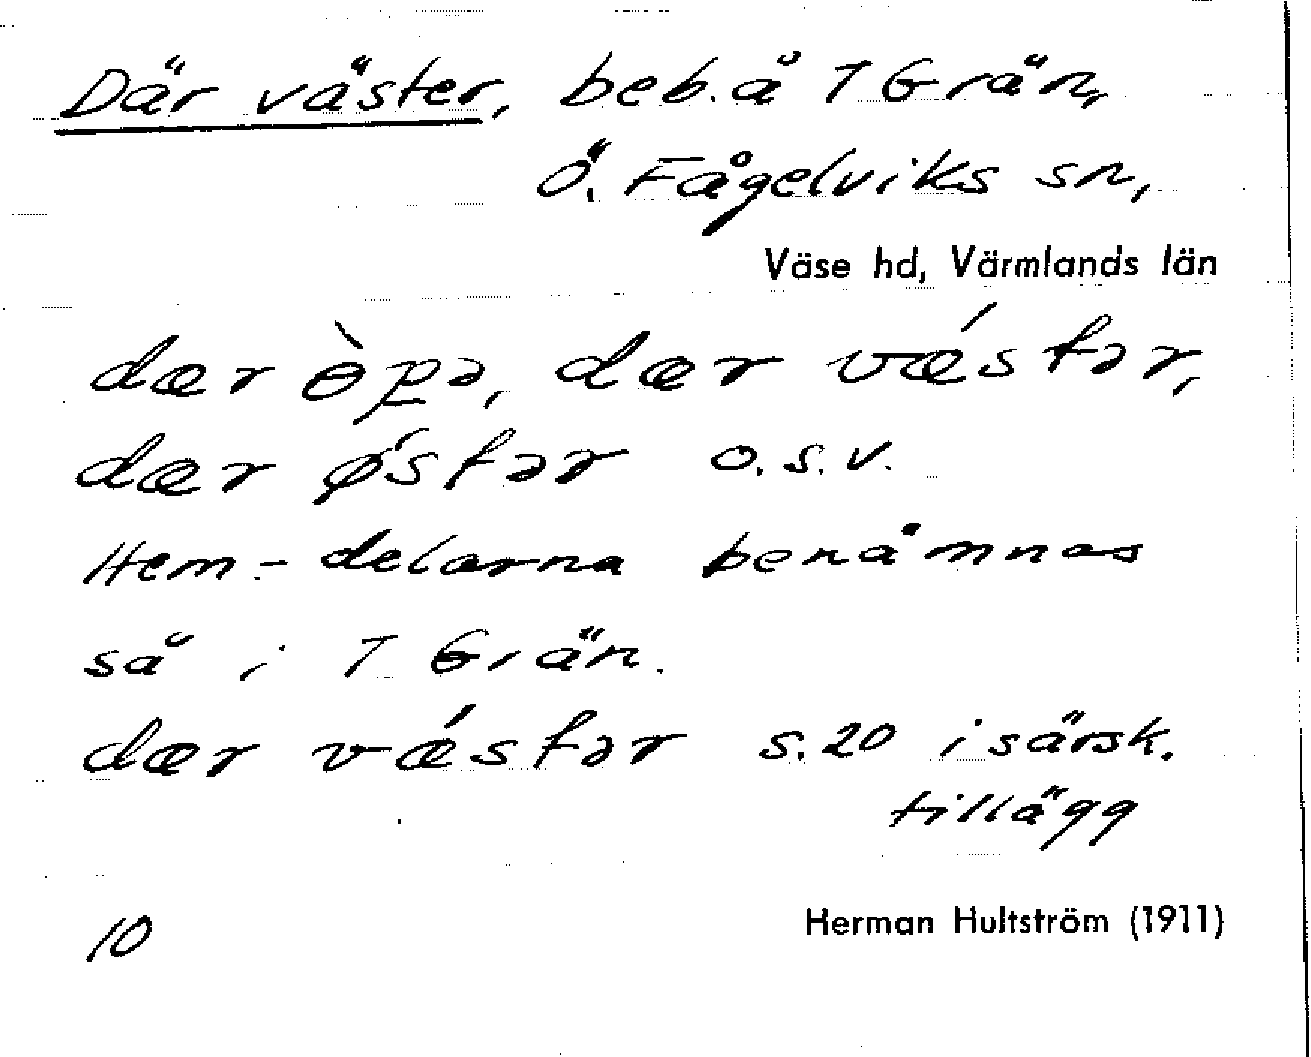 Där väster, beb. å 1 Grän,
Ö. Fågelviks sn,
Väse hd, Värmlands län
dær ɵ̀pə, dær vǽstər,
dær ǿstər o.s.v.
Hem.-delarna benämnas
så i 1 Grän.
dær vǽstər s. 20 i särsk.
tillägg
10
Herman Hultström (1911)